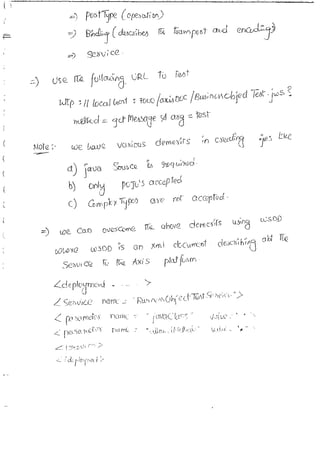 =) PortType (operation)
=) Binding (describes the Transport and encoding)
=) Service.
=) Use the following URL to Test
http://localhost : /axis /BusinessObject Test .jws?
method = getMessage & arg = test
Note :- we have various demerits in creating jws
a) java Source is required.
b) only POJO's accepted
c) Complex Types are not accepted.
=) we can overcome the above demerits using WSDD
where WSDD is an xml document describing abt the
Service to the Axis platform
<deployment - - - >
< Service name = "BusinessObjectTestService">
< parameter name = "className" value =
< parameter name = "allowedMethods" value =
</service>
</deployment>